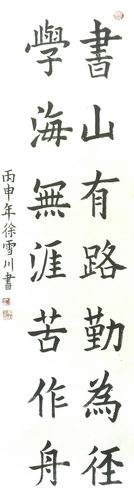 書山有路勤為徑
學海無涯苦作舟
丙申年徐雪川書